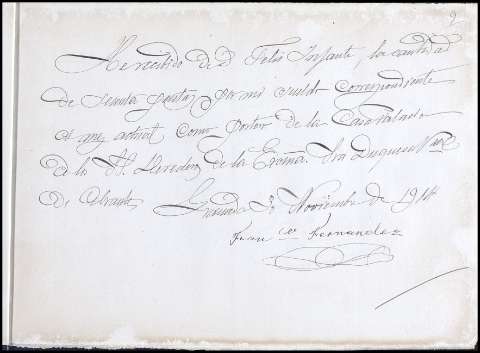 9
He recibido de D. Felix Infante, la cantidad
de sesenta pesetas por mi sueldo correspondiente
al mes actual como portero de la Casa Palacio
de los Herederos de la Excma. Sra Duquesa
de Abrantes
Granada 30 Noviembre de 1914
Franco Fernandez